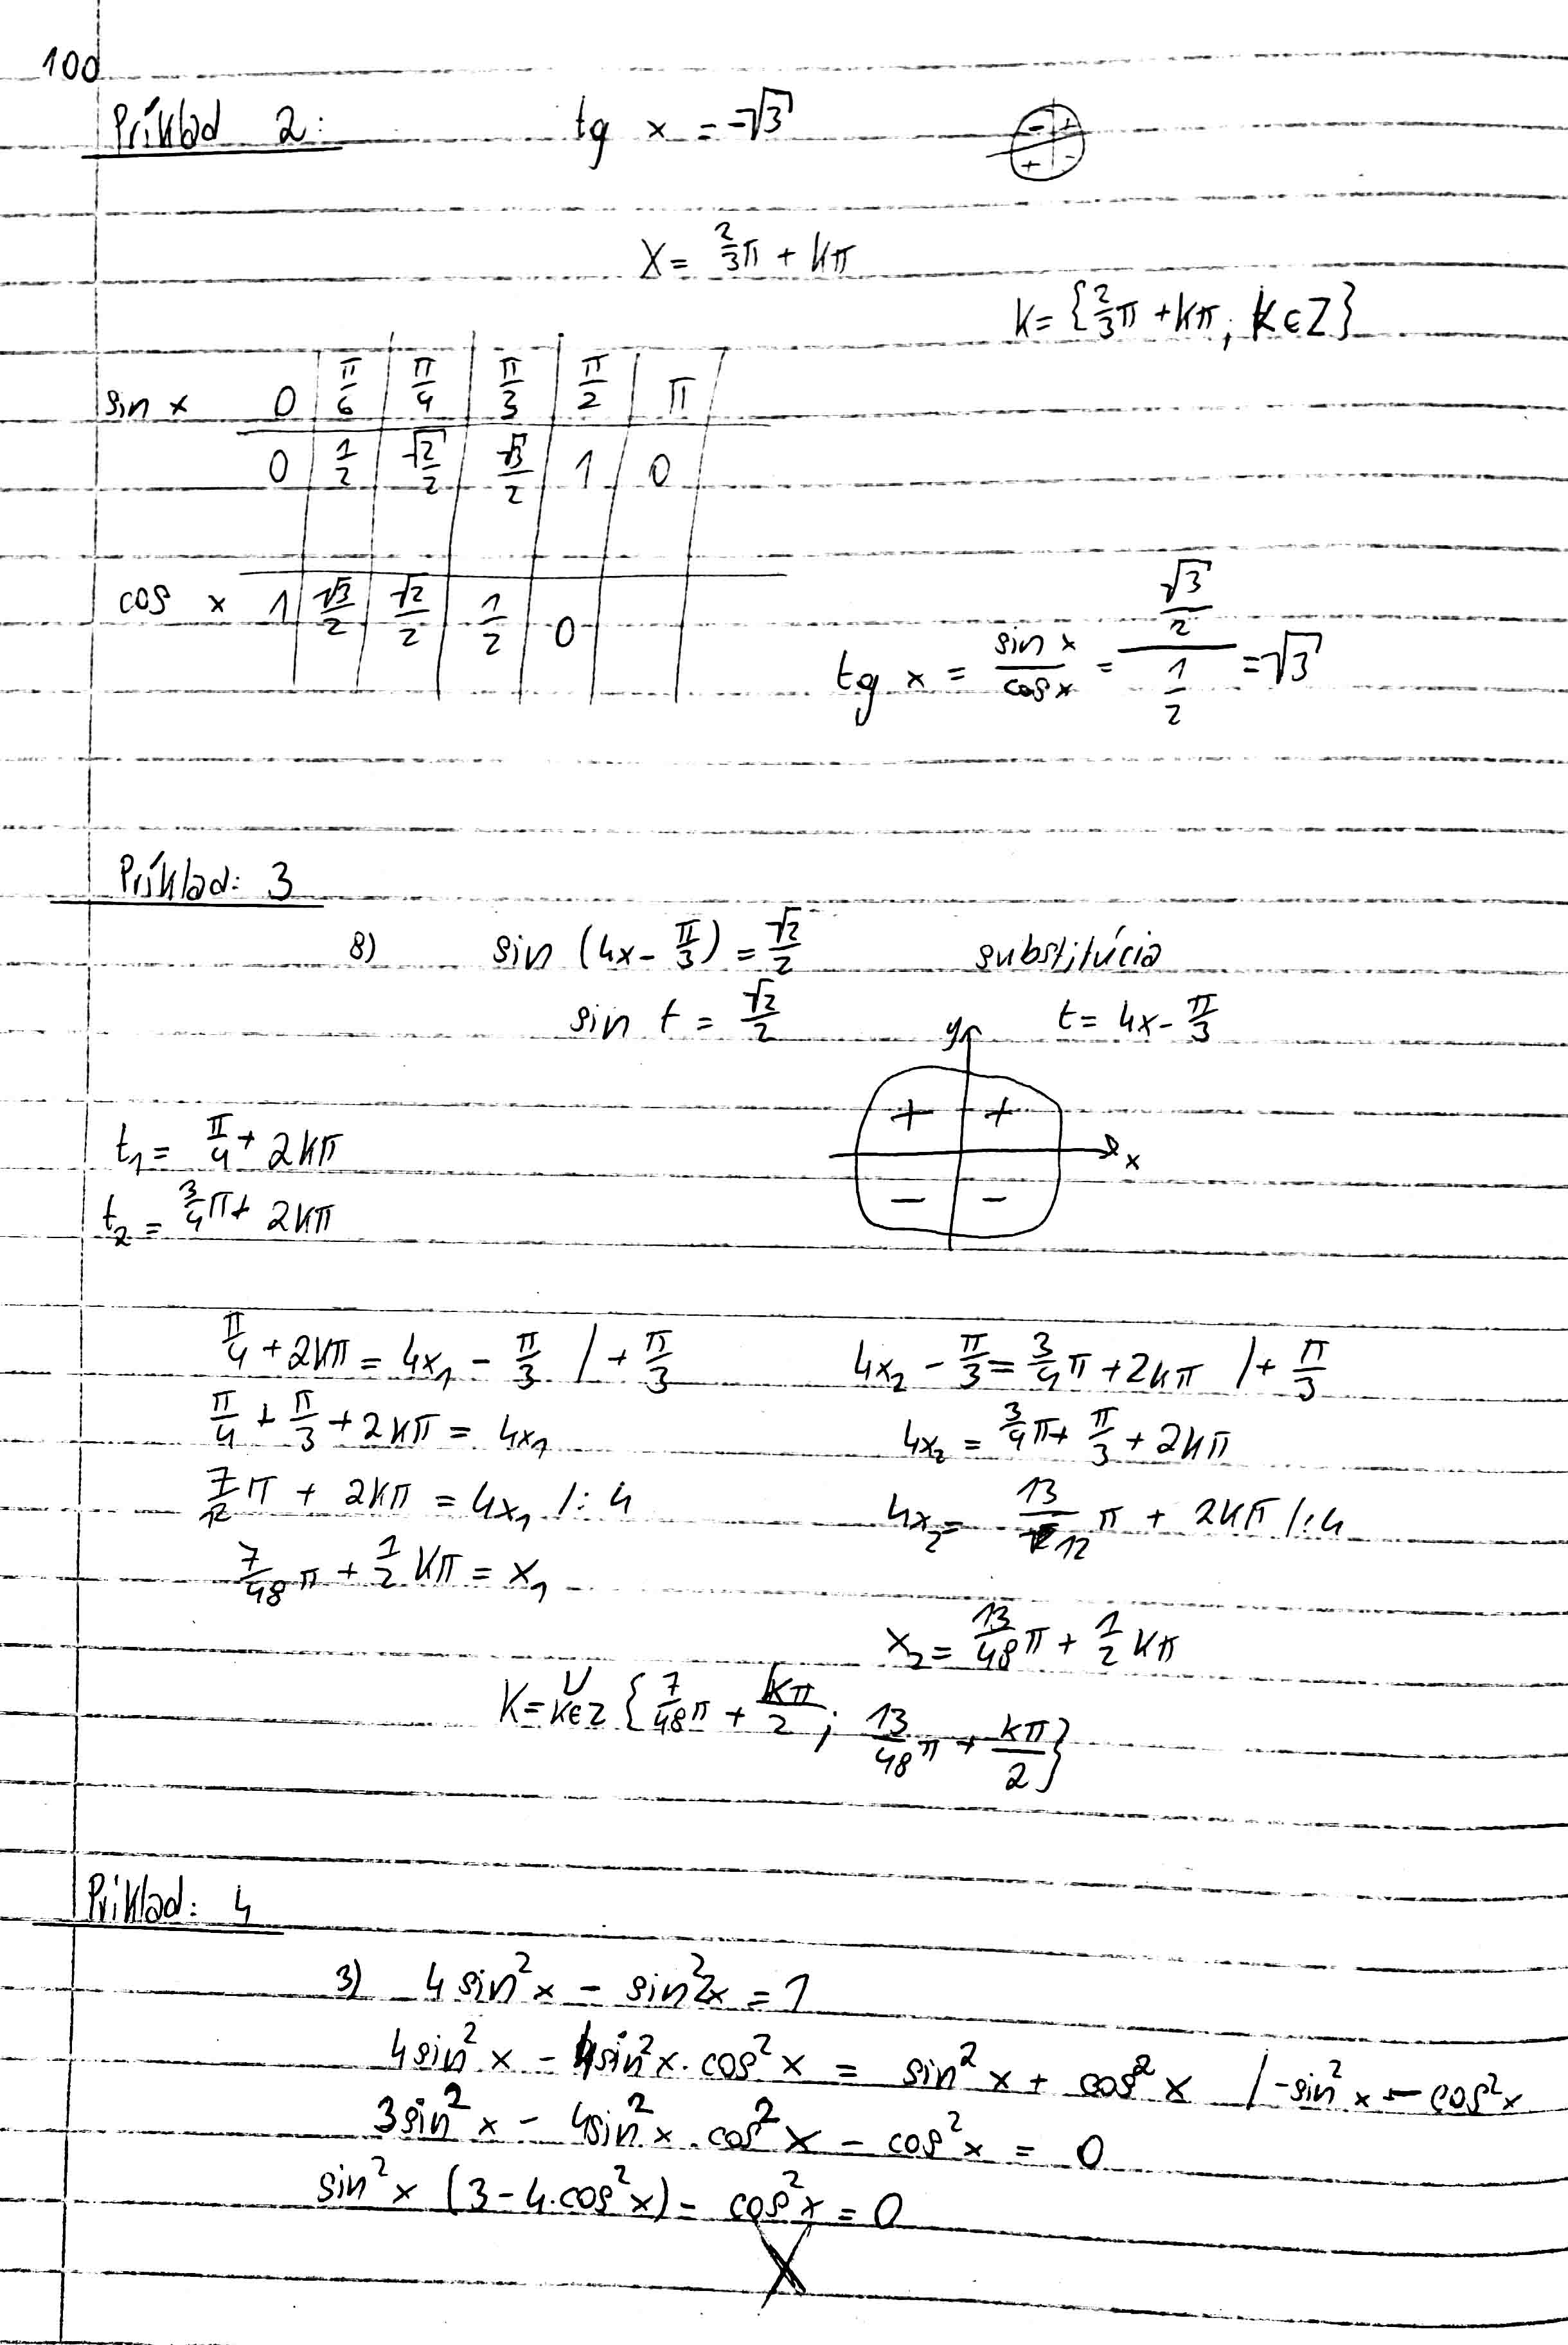 100
Príklad 2: tg x = -√3
- +
+ -
X = 2/3π + kπ
K = {2/3π + kπ; k∈Z}
sin x 0 π/6 π/4 π/3 π/2 π
0 1/2 √2/2 √3/2 1 0
cos x 1 √3/2 √2/2 1/2 0
tg x = sin x/cos x = (√3/2)/(1/2) = √3
Príklad: 3
8) sin (4x - π/3) = √2/2 substitúcia
sin t = √2/2 t = 4x - π/3
y
+ +
x
- -
t₁ = π/4 + 2kπ
t₂ = 3/4π + 2kπ
π/4 + 2kπ = 4x₁ - π/3 /+ π/3 4x₂ - π/3 = 3/4π + 2kπ /+ π/3
π/4 + π/3 + 2kπ = 4x₁ 4x₂ = 3/4π + π/3 + 2kπ
7/12π + 2kπ = 4x₁ /:4 4x₂ = 13/12π + 2kπ /:4
7/48π + 1/2kπ = x₁
x₂ = 13/48π + 1/2kπ
K = ∪k∈Z {7/48π + kπ/2; 13/48π + kπ/2}
Príklad: 4
3) 4sin²x - sin²2x = 1
4sin²x - 4sin²x·cos²x = sin²x + cos²x /-sin²x - cos²x
3sin²x - 4sin²x·cos²x - cos²x = 0
sin²x (3 - 4·cos²x) - cos²x = 0